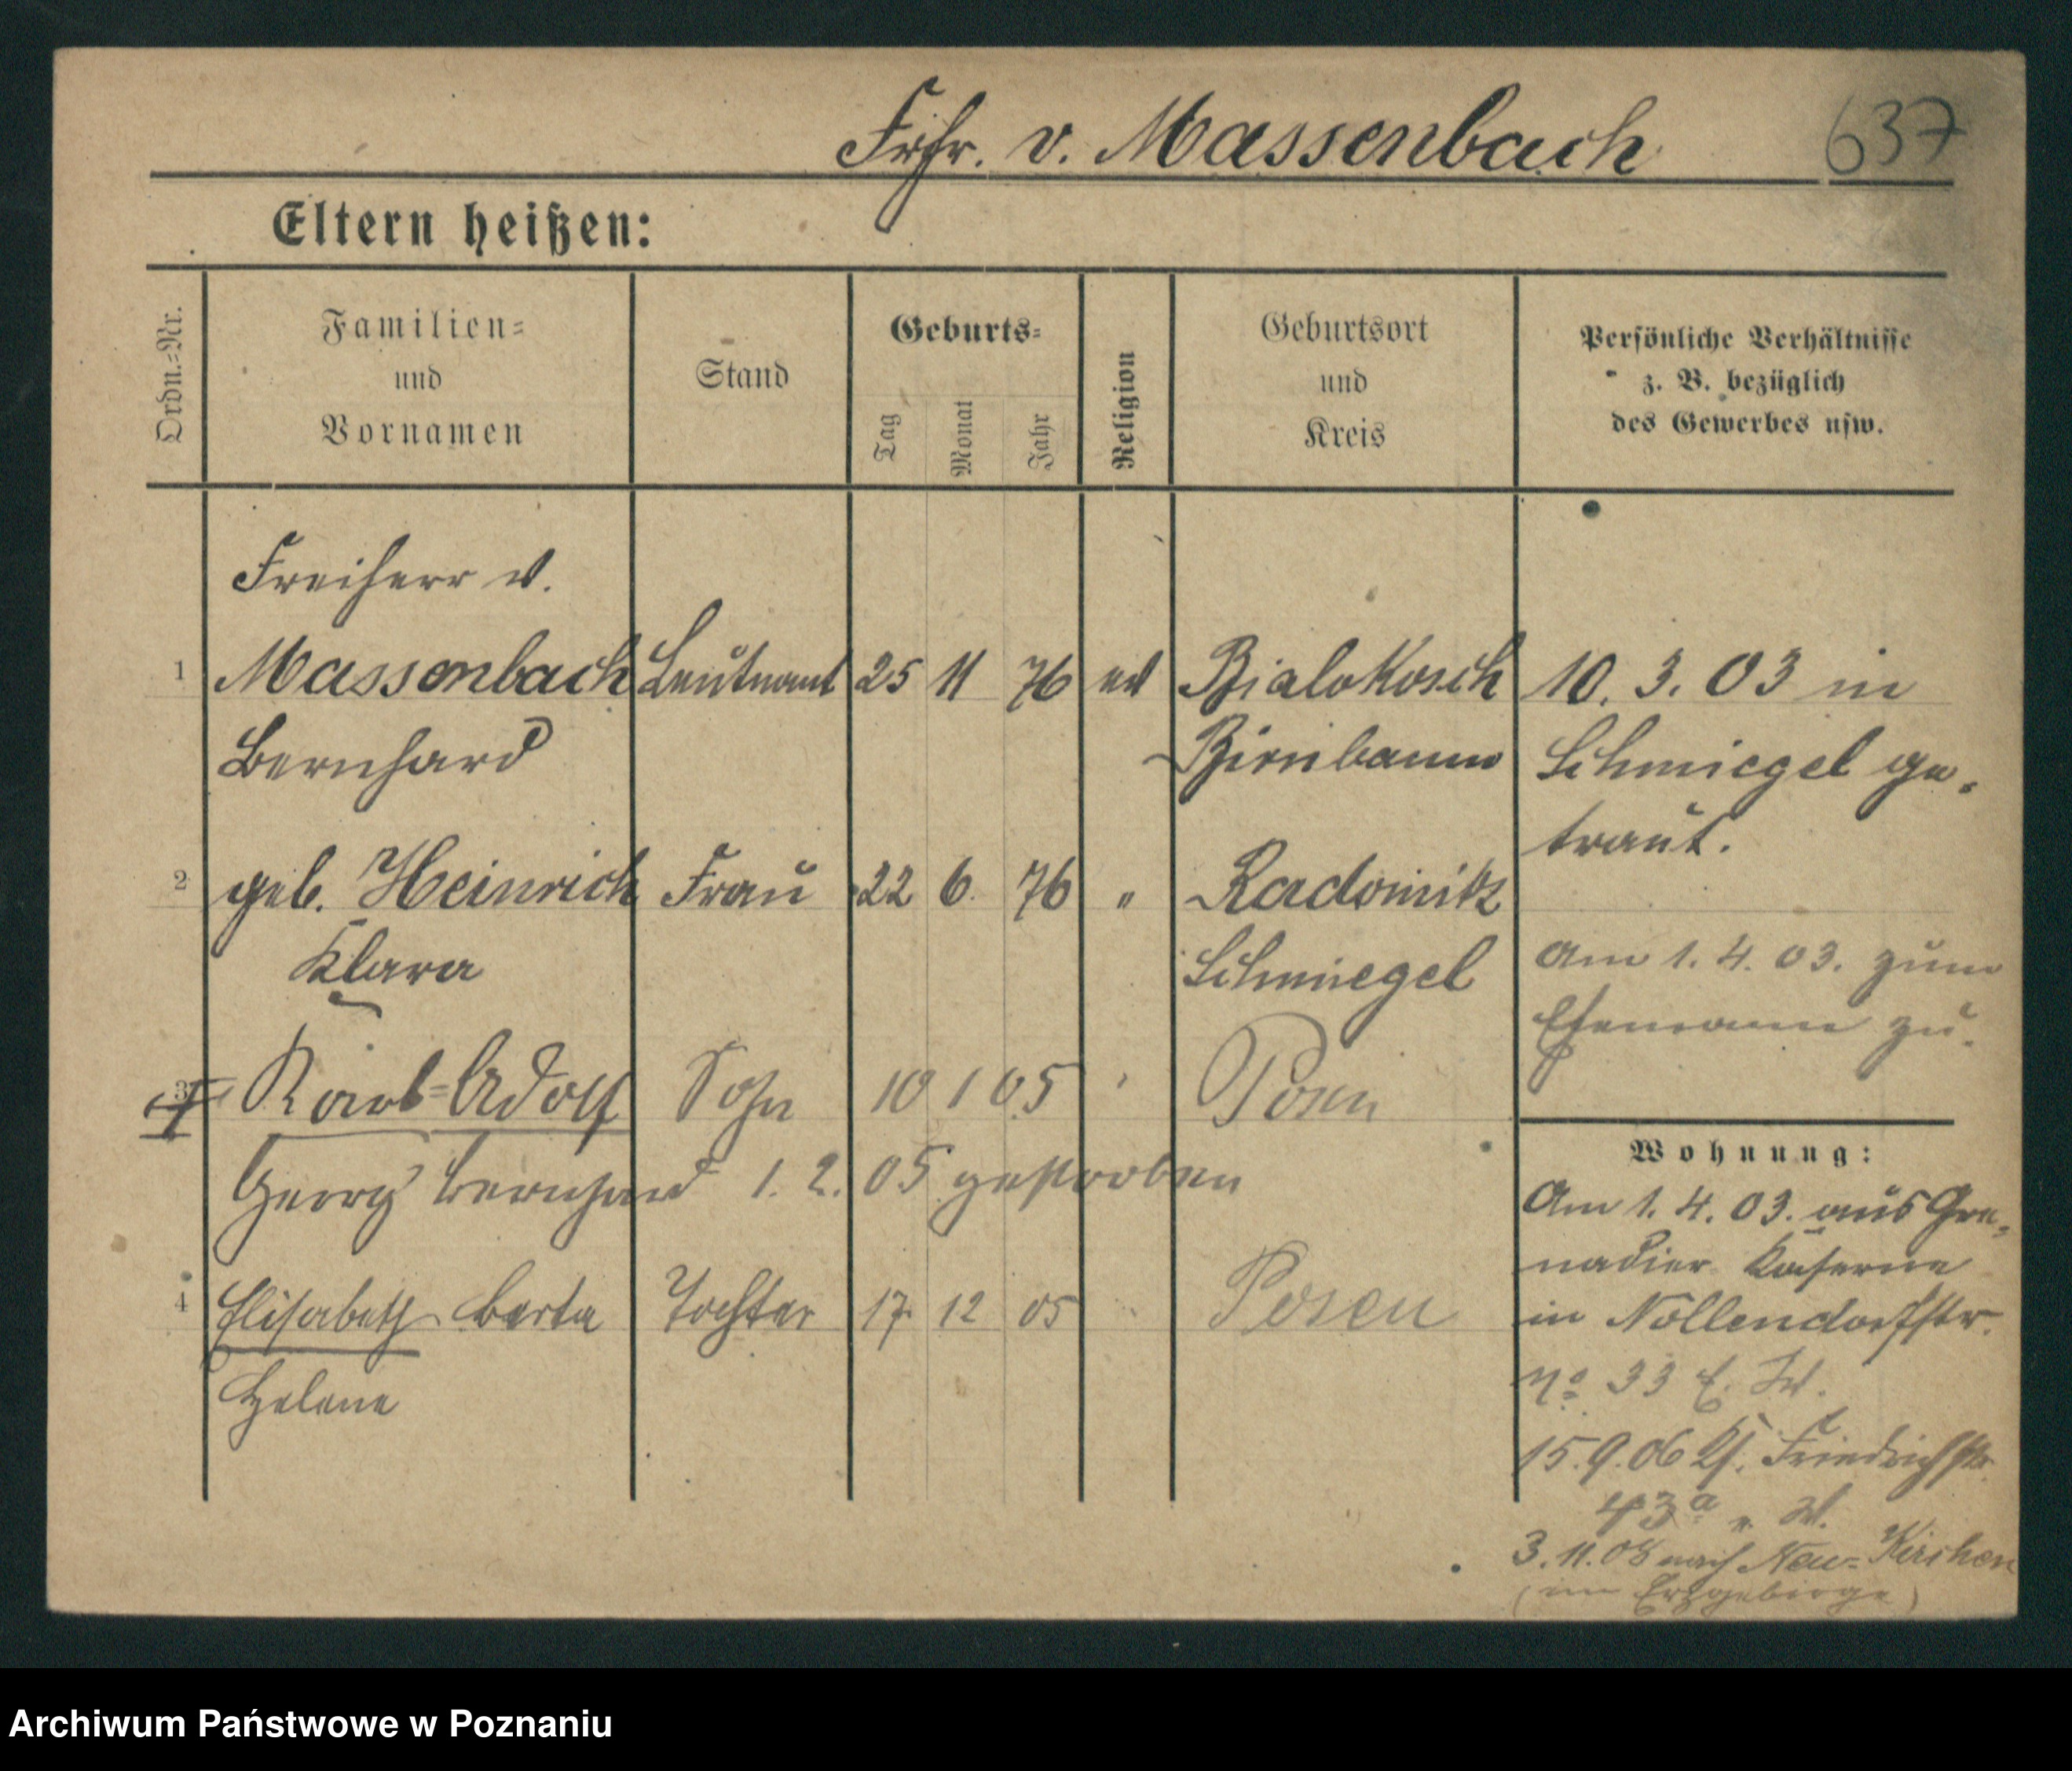 Frhr. v. Massenbach 637
Eltern heißen:
Ordn.=Nr.
Familien=
und
Vornamen
Stand
Geburts=
Tag
Monat
Jahr
Religion
Geburtsort
und
Kreis
Persönliche Verhältnisse
z. B. bezüglich
des Gewerbes usw.
Freiherr v.
1 Massenbach Leutnant 25 11 76 ev Bialokosch
Bernhard Birnbaum
10. 3. 03 in
Schmiegel ge-
traut.
2 geb. Heinrich Frau 22 6. 76 " Radomitz
Klara Schmiegel
Am 1. 4. 03. zum
Ehemann zu.
3 Karl=Adolf Sohn 10 1 05 " Posen
Georg Bernhard 1. 2. 05 gestorben
4 Elisabeth Berta Tochter 17 12 05 Posen
Helene
Wohnung:
Am 1. 4. 03. aus Gre-
nadier Kaserne
in Nollendorfstr.
No 33 E. W.
15.9.06 Kf. Friedrichstr.
43a v. W.
3.11.08 nach Neu-Kirchen
(im Erzgebirge)
Archiwum Państwowe w Poznaniu